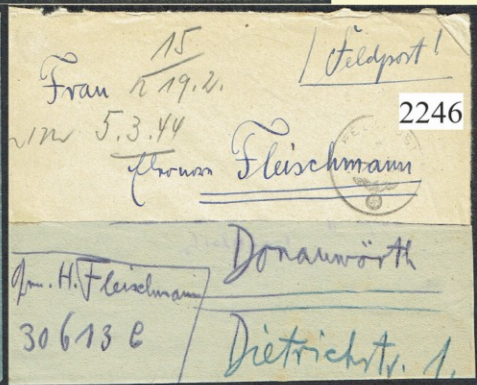 15
Feldpost!
Frau
19.2.
5.3.44
2246
Eleonore Fleischmann
Donauwörth
H. Fleischmann
30613 C
Dietrichstr. 1.